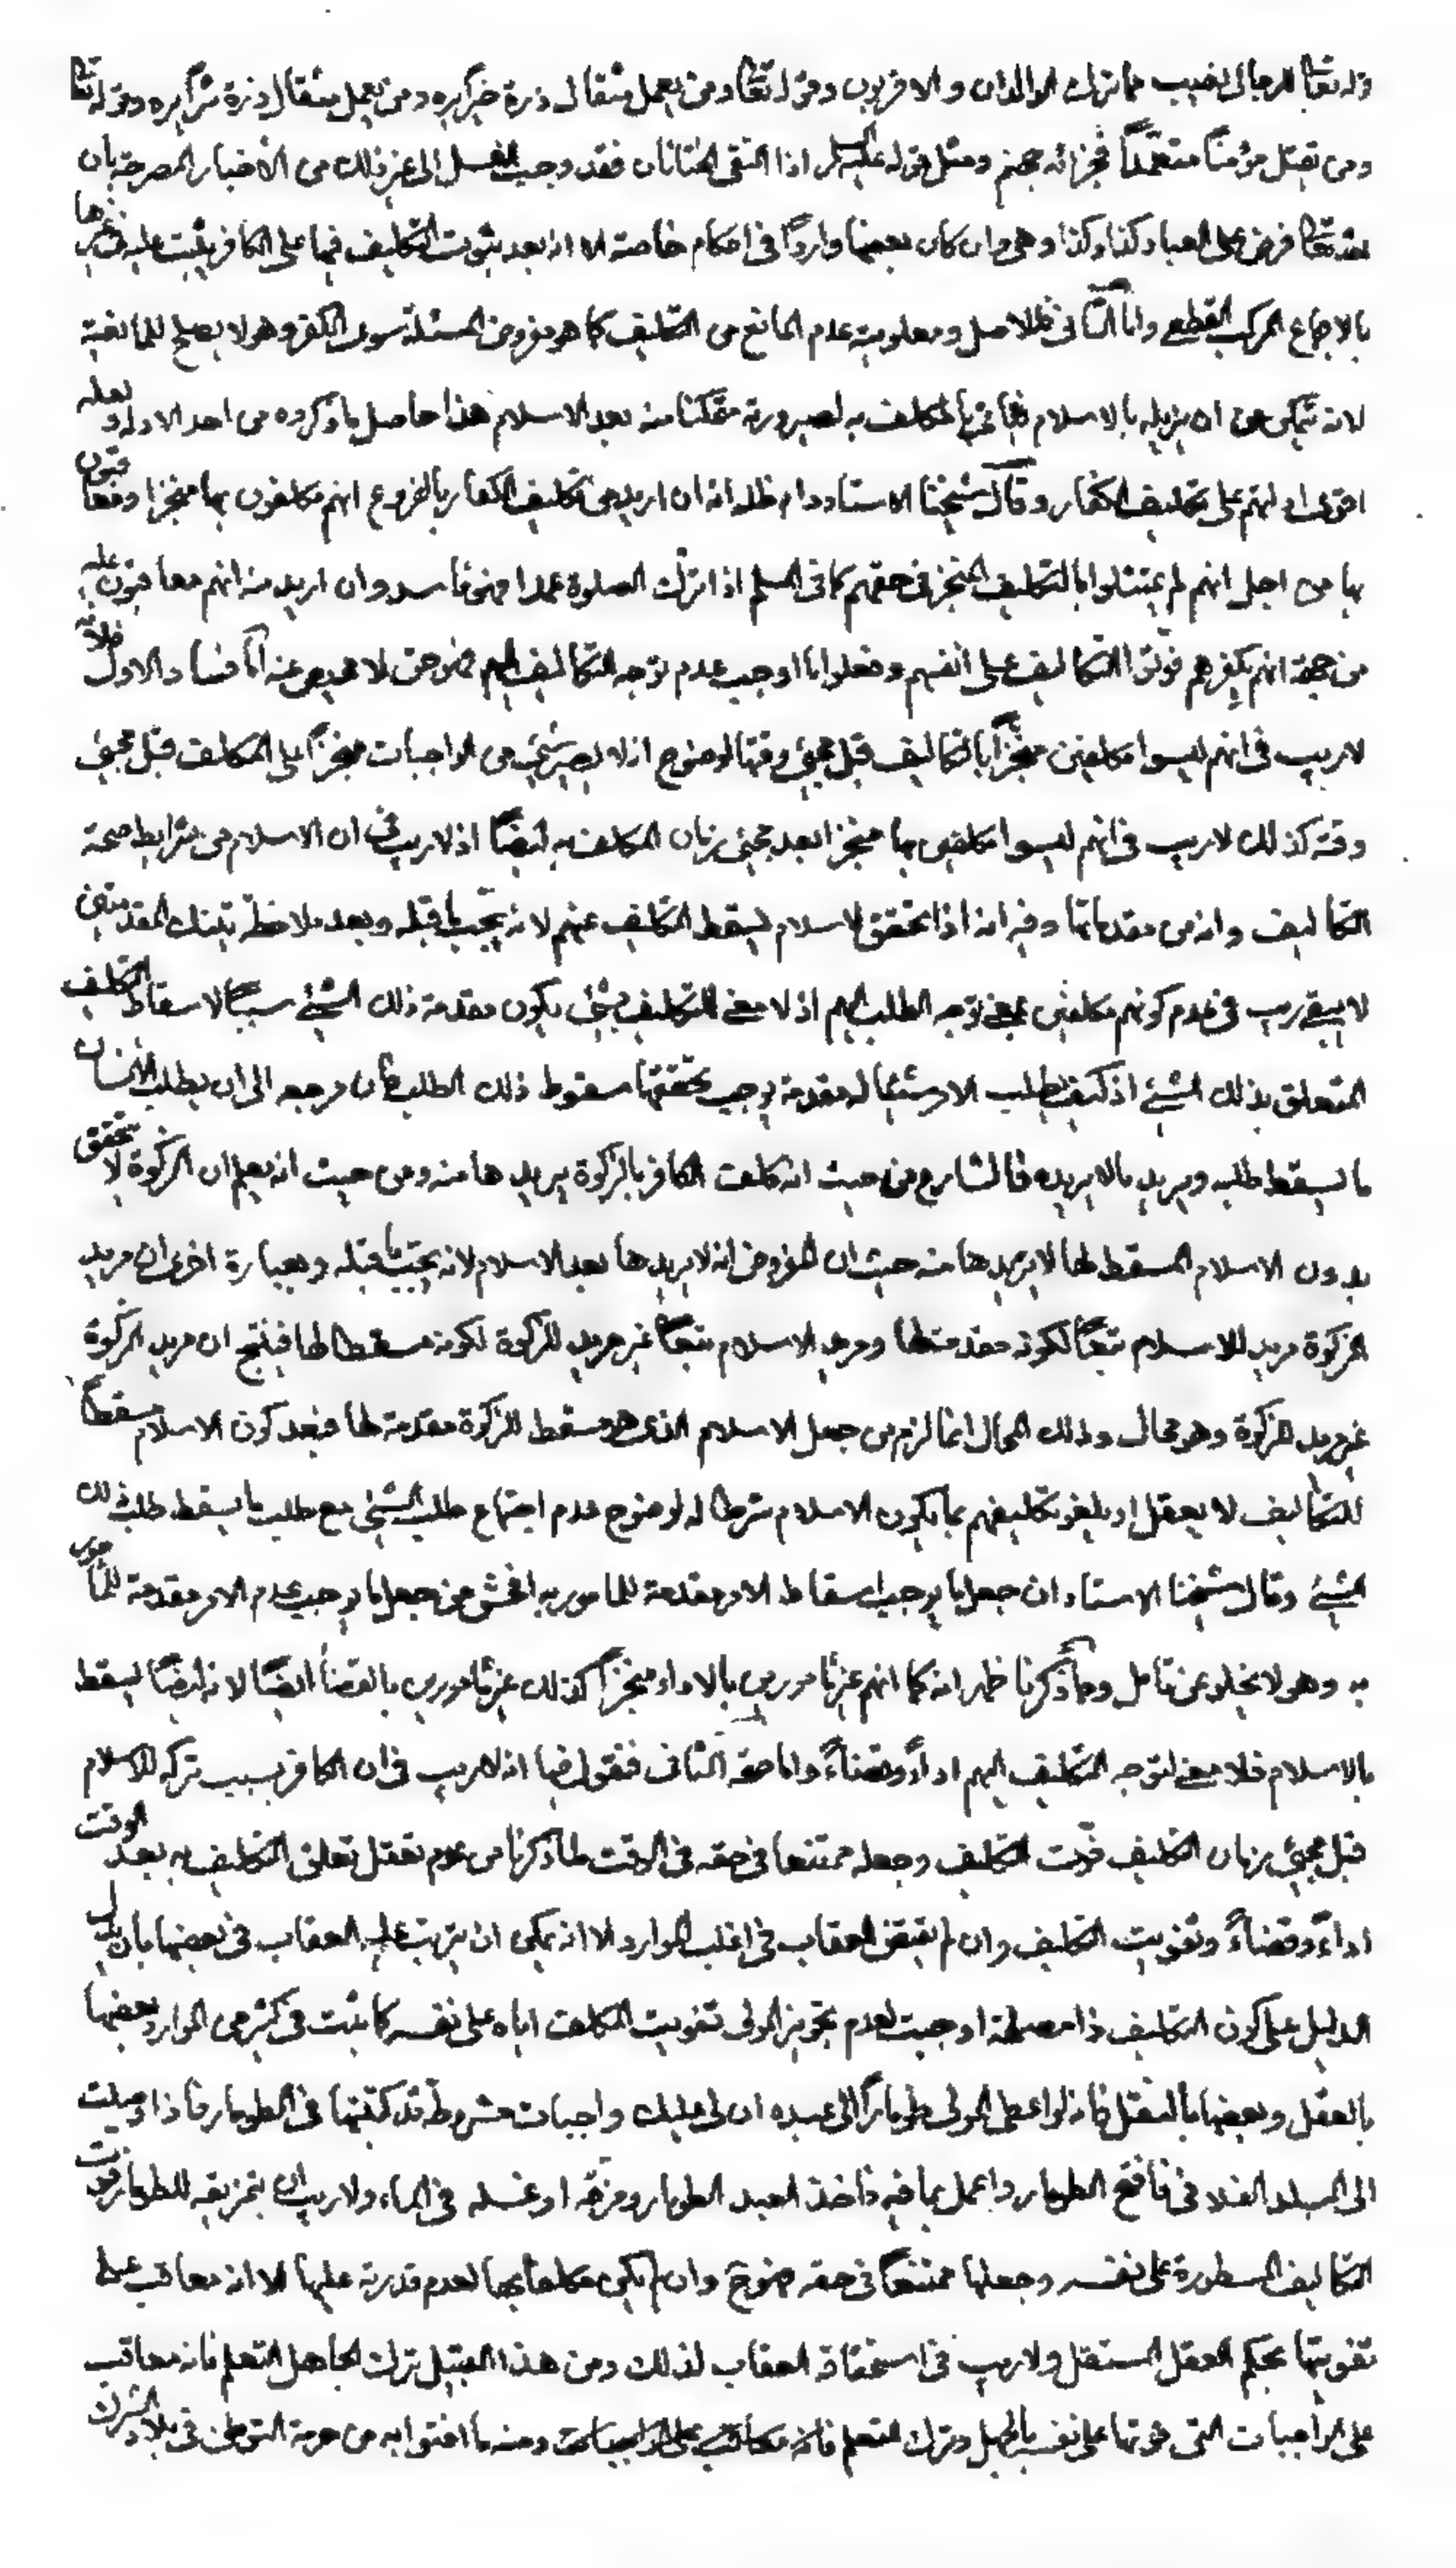 وله تعا للرجال نصيب مما ترك الوالدان والاقربون وقوله تعا ومن يعمل مثقال ذرة خيرا يره ومن يعمل مثقال ذرة شرا يره وقوله تعا
ومن يقتل مؤمنا متعمدا فجزائه جهنم ومثل قوله عليه السلم اذا التقى الختانان فقد وجب الغسل الى غير ذلك من الأخبار المصرحة بان
لله تعا فرض على العباد كذا وكذا وهى وان كان بعضها واردا فى احكام خاصة الا انه بعد ثبوت التكليف فيها على الكافر يثبت عليه فى غيرها
بالاجماع المركب القطعى واما الثانى فللاصل ومعلومية عدم المانع من التكليف كما هو مفروض المسئلة سوى الكفر وهو لا يصلح للمانعية
لانه يتمكن من ان يزيله بالاسلام فيأتى بالمكلف به لصيرورته متمكنا منه بعد الاسلام هذا حاصل ما ذكروه من احد الادلة ولعله
اقوى ادلتهم على تكليف الكفار وقال شيخنا الاستاد دام ظله انه ان اريد من تكليف الكفار بالفروع انهم مكلفون بها منجزا ومعاقبون
بها من اجل انهم لم يمتثلوا بالتكليف المنجز فى حقهم كما فى المسلم اذا ترك الصلوة عمدا فهو فاسد وان اريد منه انهم معاقبون عليه
من جهة انهم بكفرهم فوتوا التكاليف على انفسهم وفعلوا ما اوجب عدم توجه التكاليف اليهم فهو حق لا محيص عنه اما فساد الاول فلانه
لا ريب فى انهم ليسوا مكلفين منجزا بالتكاليف قبل مجيئ وقتها لوضوح انه لا يصير شيئ من الواجبات منجزا على المكلف قبل مجيئ
وقته كذلك لا ريب فى انهم ليسوا مكلفين بها منجزا بعد مجيئ زمان المكلف به ايضا اذ لا ريب فى ان الاسلام من شرايط صحة
التكاليف وانه من مقدماتها وفى انه اذا تحقق الاسلام ليسقط التكليف عنهم لانه يجب ما قبله وبعد ملاحظة تينك المقدمتين
لا يبقى ريب فى عدم كونهم مكلفين بمعنى توجه الطلب اليهم اذ لا معنى للتكليف بشيئ يكون مقدمة ذلك الشيئ سببا لاسقاط التكليف
المتعلق بذلك الشيئ اذ كيف يطلب الامر شيئا له مقدمة يوجب تحققها سقوط ذلك الطلب فان مرجعه الى ان يطلب الانسان
ما يسقط طلبه ويريد ما لا يريده فالشارع من حيث انه كلف الكافر بالزكوة يريدها منه ومن حيث انه يعلم ان الزكوة لا يتحقق
بدون الاسلام المسقط لها لا يريدها منه حيث ان المفروض انه لا يريدها بعد الاسلام لانه يجب ما قبله وبعبارة اخرى ان مريد
الزكوة مريد للاسلام تبعا لكونه مقدمة لها ومريد الاسلام تبعا غير مريد للزكوة لكونه مسقطا لها فينتج ان مريد الزكوة
غير مريد للزكوة وهو محال وذلك المحال انما لزم من جعل الاسلام الذى هو مسقط للزكوة مقدمة لها فبعد كون الاسلام مسقطا
للتكاليف لا يعقل او يلغو تكليفهم بما يكون الاسلام شرطا له لوضوح عدم اجتماع طلب الشيئ مع طلب ما يسقط طلب ذلك
الشيئ وقال شيخنا الاستاد ان جعل ما يوجب اسقاط الامر مقدمة للمامور به افحش من جعل ما يوجب عدم الامر مقدمة للمامور
به وهو لا يخلو عن تامل ومما ذكرنا ظهر انه كما انهم غير مامورين بالاداء منجزا كذلك غير مامورين بالقضا ايضا لانه ايضا يسقط
بالاسلام فلا معنى لتوجه التكليف اليهم اداء وقضاء واما حقية الثانى فنقول فيها انه لا ريب فى ان الكافر بسبب تركه للاسلام
قبل مجيئ زمان التكليف فوت التكليف وجعله ممتنعا فى حقه فى الوقت لما ذكرنا من عدم تعقل تعلق التكليف به بعد الوقت
اداء وقضاء وتفويت التكليف وان لم يقتض العقاب فى اغلب الموارد الا انه يمكن ان يترتب عليه العقاب فى بعضها بان يدل
الدليل على كون التكليف ذا مصلحة اوجبت لعدم تجويز المولى تفويت المكلف اياه على نفسه كما يثبت فى كثير من الموارد بعضها
بالعقل وبعضها بالنقل فانه لو اعطى المولى طومارا الى عبده ان لى عليك واجبات مشروطة قد كتبتها فى الطومار فاذا وصلت
الى البلد الفلانى فافتح الطومار واعمل بما فيه فاخذ العبد الطومار ومزقه او غسله فى الماء ولا ريب ان بتمزيقه للطومار فوت
التكاليف المسطورة على نفسه وجعلها ممتنعا فى حقه فهو ح وان لم يكن مكلفا بها لعدم قدرته عليها الا انه معاقب على
تفويتها بحكم العقل المستقل ولا ريب فى استحقاقه العقاب لذلك ومن هذا القبيل ترك الجاهل التعلم فانه معاقب
على الواجبات التى فوتها على نفسه بالجهل وترك التعلم فانه معاقب على الواجبات ومنه ما افتوا به من حرمة التوطن فى بلاد الشرك